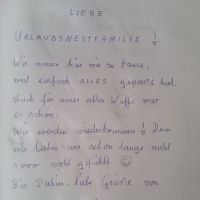 LIEBE
URLAUBSNESTFAMILIE !
Wir waren hier wie zu Hause,
weil einfach ALLES gepasst hat.
Auch für unser alles Waffi war
es schon.
Wir werden wiederkommen! Denn
wir haben uns schon lange nicht
sooo wohl gefühlt ☺
Bis Dahin, liebe Grüße von